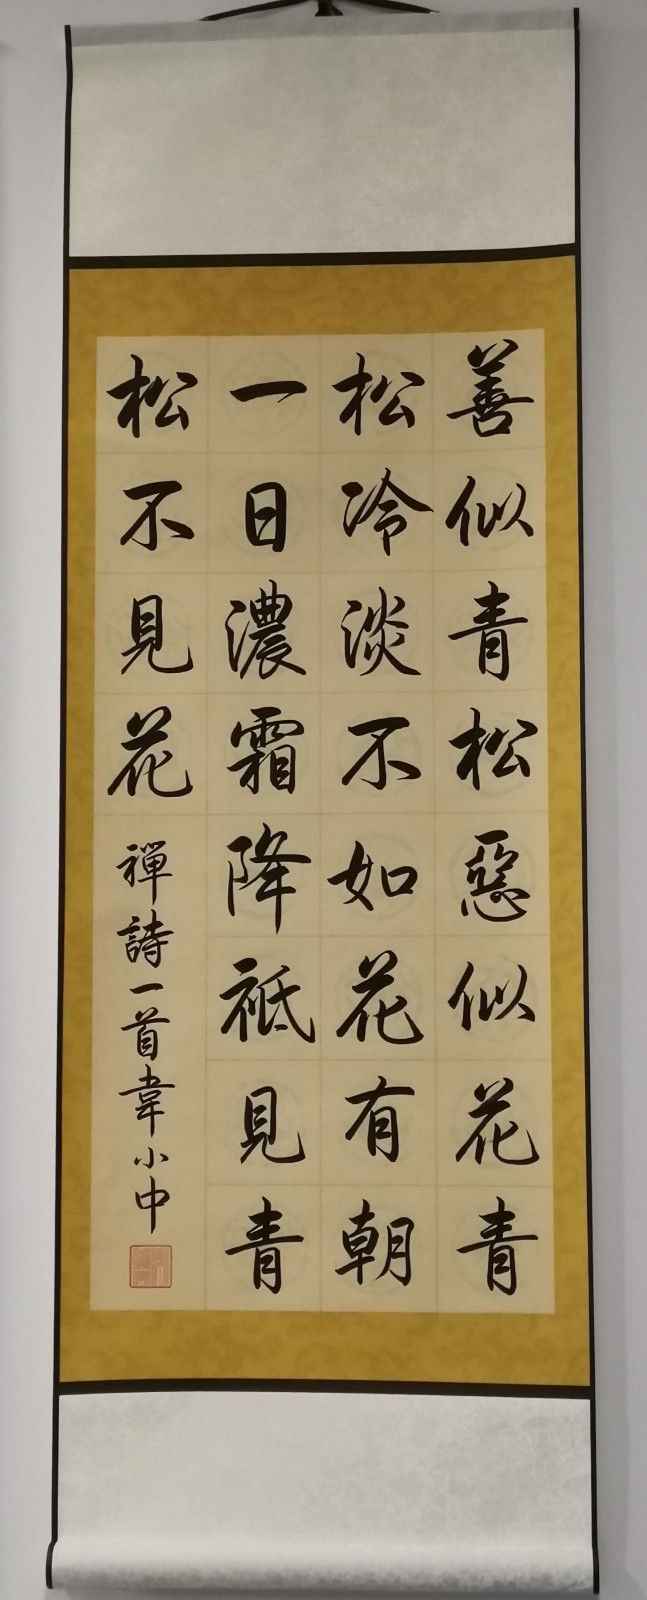 善似青松惡似花青
松冷淡不如花有朝
一日濃霜降祗見青
松不見花
禪詩一首韋小中